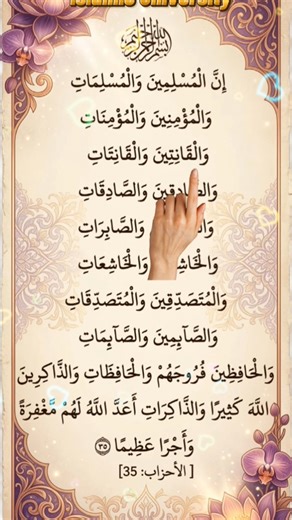 Islamic University
بسم الله الرحمن الرحيم
إِنَّ الْمُسْلِمِينَ وَالْمُسْلِمَاتِ
وَالْمُؤْمِنِينَ وَالْمُؤْمِنَاتِ
وَالْقَانِتِينَ وَالْقَانِتَاتِ
وَالصَّادِقِينَ وَالصَّادِقَاتِ
وَالصَّابِرَاتِ
وَالْخَاشِعَاتِ
وَالْمُتَصَدِّقِينَ وَالْمُتَصَدِّقَاتِ
وَالصَّآئِمِينَ وَالصَّآئِمَاتِ
وَالْحَافِظِينَ فُرُوجَهُمْ وَالْحَافِظَاتِ وَالذَّاكِرِينَ
اللَّهَ كَثِيرًا وَالذَّاكِرَاتِ أَعَدَّ اللَّهُ لَهُمْ مَّغْفِرَةً
وَأَجْرًا عَظِيمًا ٣٥
[ الأحزاب: 35]